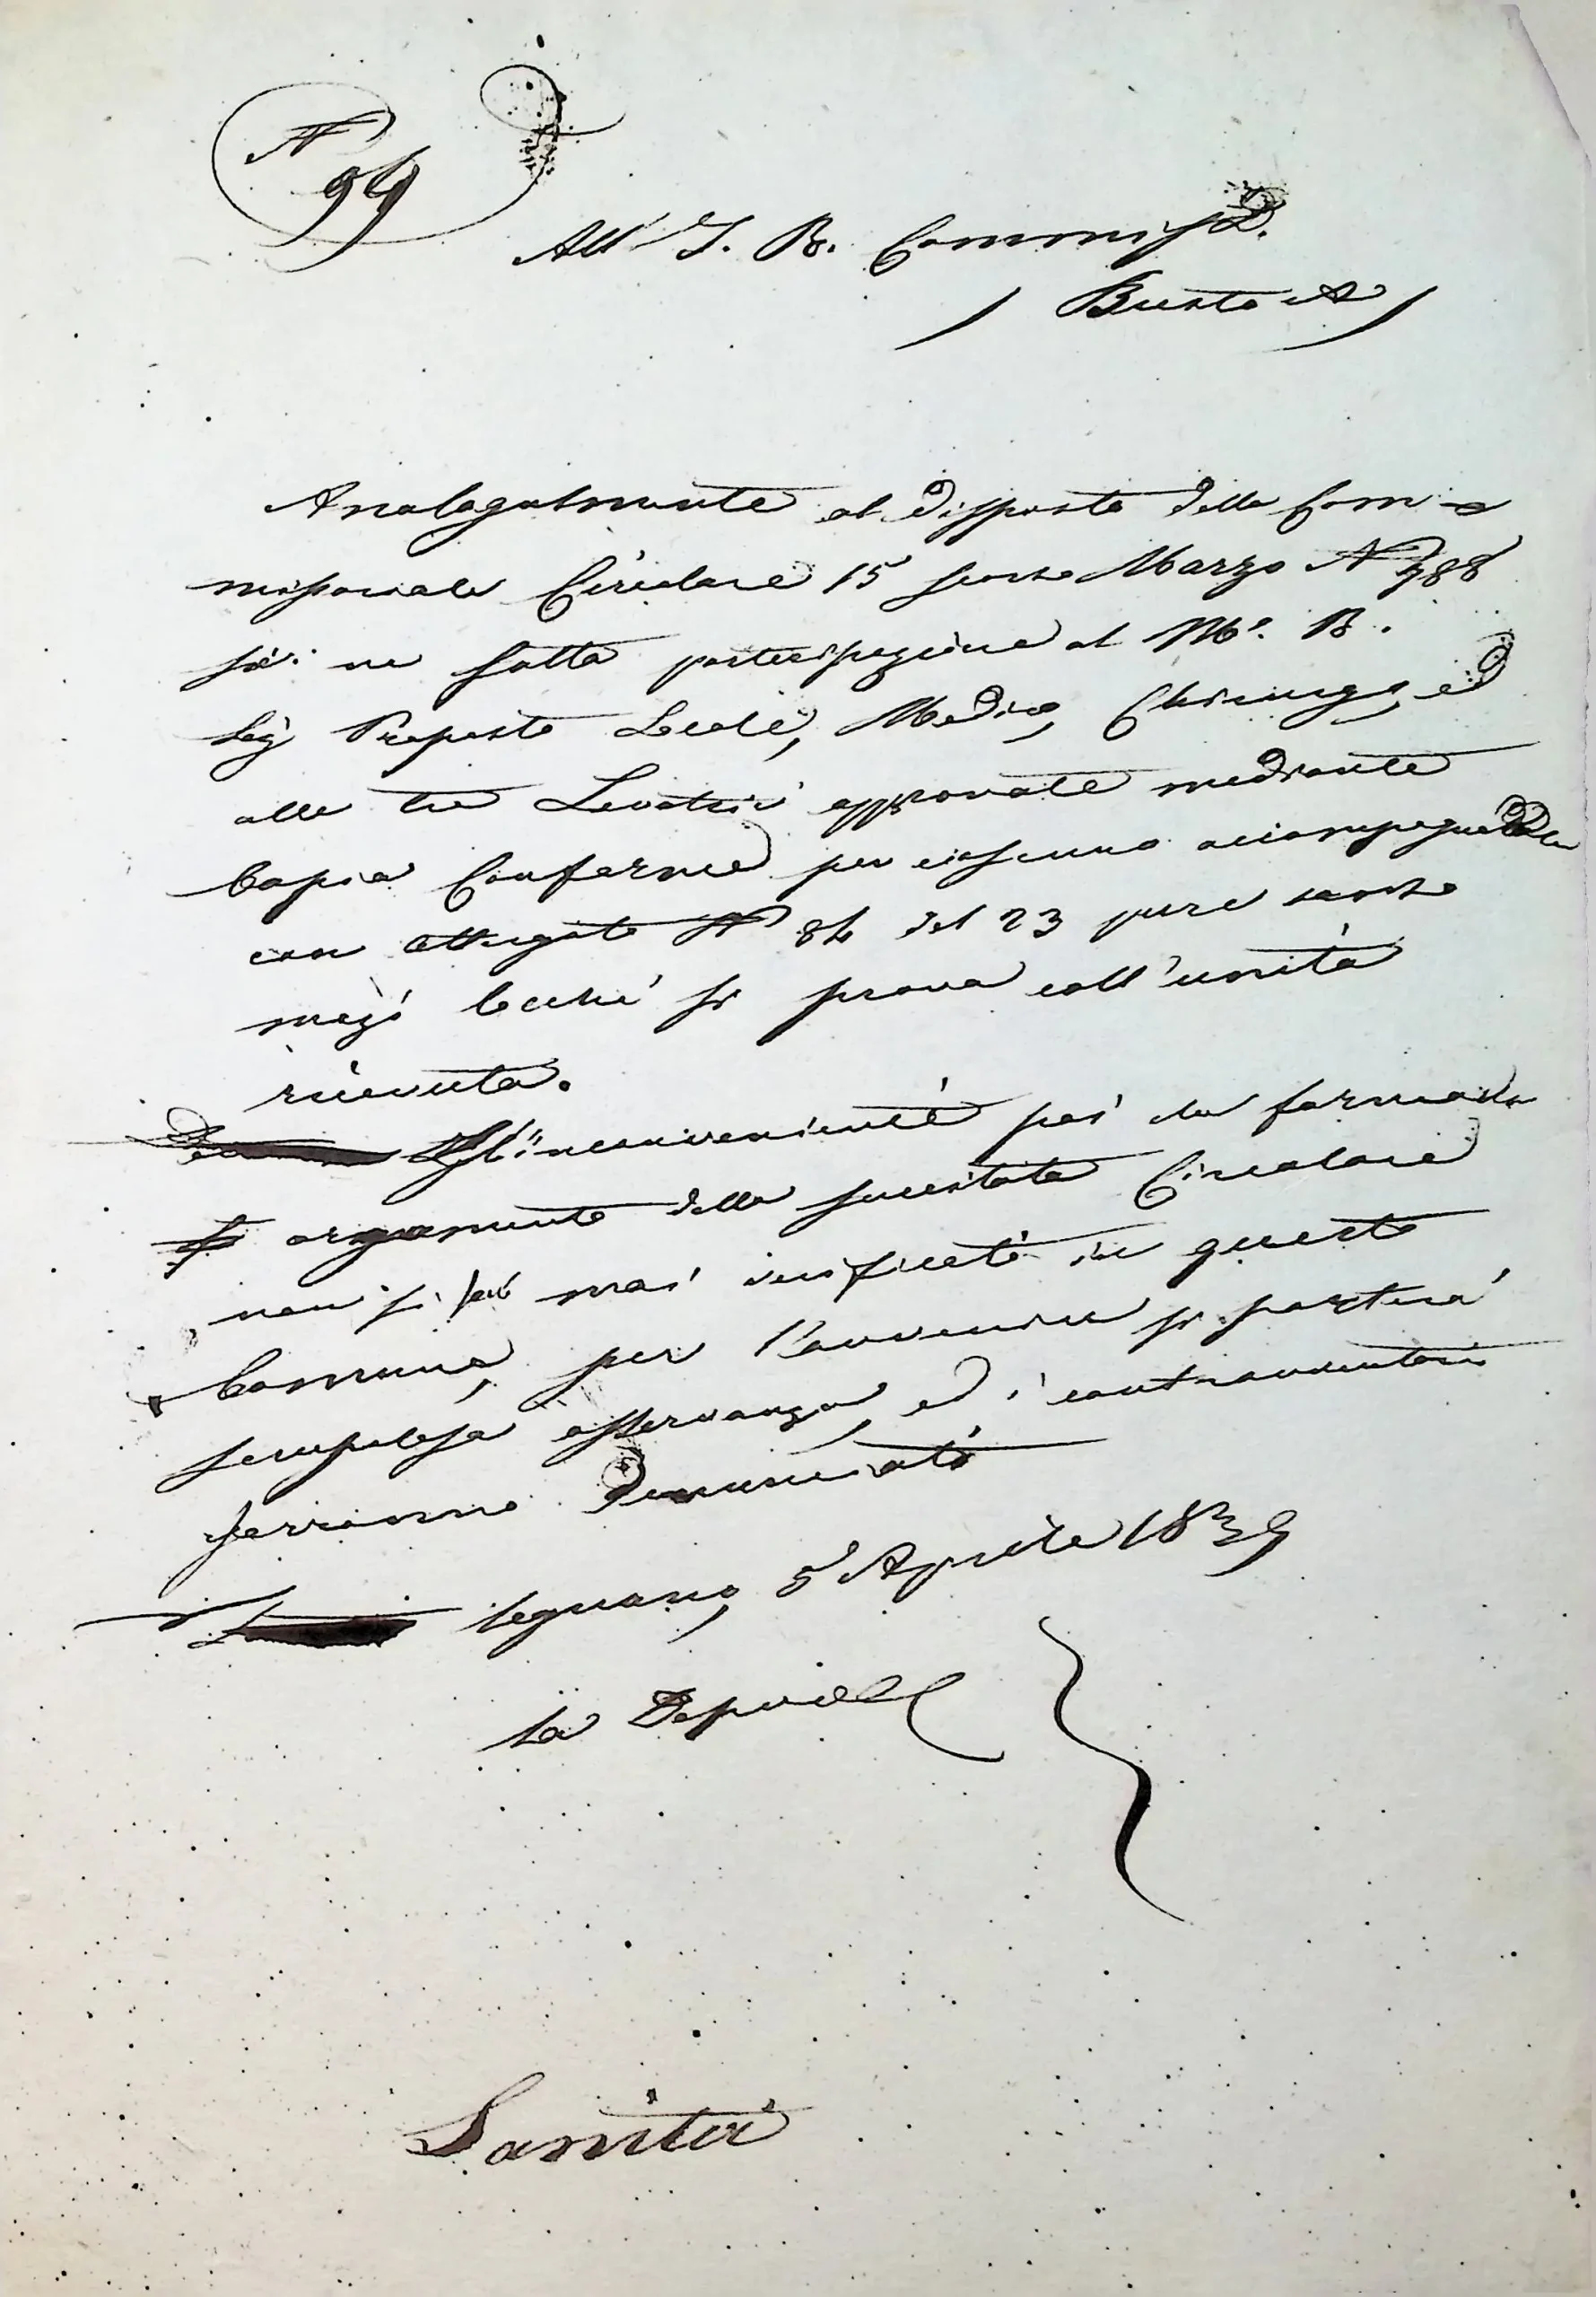 N 94
All' I. R. Commiss.
Busto A
Analogalmente al disposto della Com=
missariale Circolare 15 scorso Marzo N 988
si è ne fatta partecipazione al M. R.
Sig Preposto Locale, Medico, Chirurgo, ed
alle tre Levatrici approvate mediante
Copia Conforme per ciascuno accompagnata
con attergato N 84 del 23 pure scorso
mese locchè si prova coll'unita
ricevuta.
Gl'inconvenienti poi che formano
argomento della succitata Circolare
non si sono mai verificati in questo
Comune, per l'avvenire si porterà
scrupolosa osservanza, ed i contravventori
verranno denunciati
Legnano, 5 Aprile 1839
La Deputaz
Sanità